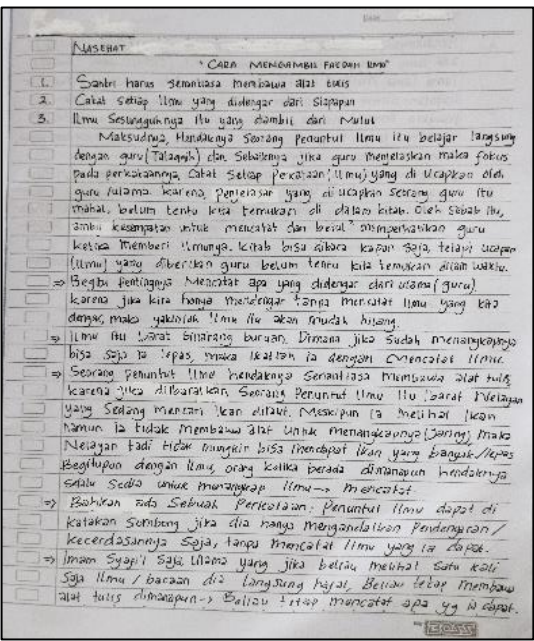 NASEHAT
"CARA MENGAMBIL FAEDAH ILMU"
1. Santri harus senantiasa membawa alat tulis
2. Catat setiap ilmu yang didengar dari siapapun
3. Ilmu Sesungguhnya itu yang diambil dari Mulut
Maksudnya, Hendaknya Seorang Penuntut Ilmu itu belajar langsung
dengan guru (Talaqqih) dan Sebaiknya jika guru menjelaskan maka fokus
pada perkataannya, Catat Setiap Perkataan (Ilmu) yang di ucapkan oleh
guru /ulama. karena, Penjelasan yang di ucapkan Seorang guru itu
mahal, belum tentu kita temukan di dalam kitab. Oleh Sebab itu,
ambil kesempatan untuk mencatat dan betul" memperhatikan guru
ketika memberi ilmunya. kitab bisa dibaca kapan Saja, tetapi ucapan
(Ilmu) yang diberikan guru belum tentu kita temukan dilain waktu.
⇒ Begitu pentingnya Mencatat apa yang didengar dari ulama (guru).
karena jika kita hanya mendengar tanpa mencatat Ilmu yang kita
dengar, maka yakinlah ilmu itu akan mudah hilang.
⇒ Ilmu itu ibarat binatang buruan. Dimana jika Sudah menangkapnya
bisa Saja ia lepas, maka Ikatlah ia dengan (mencatat ilmu.
⇒ Seorang Penuntut Ilmu hendaknya Senantiasa membawa alat tulis
karena jika diibaratkan, Seorang Penuntut Ilmu itu ibarat Nelayan
yang Sedang mencari Ikan dilaut. Meskipun ia melihat Ikan
namun ia tidak membawa alat untuk menangkapnya (Jaring), maka
Nelayan tadi tidak mungkin bisa mendapat ikan yang banyak /lepas
Begitupun dengan ilmu, orang ketika berada dimanapun hendaknya
selalu Sedia untuk menangkap Ilmu → mencatat
⇒ Bahkan ada Sebuah Perkataan; Penuntut Ilmu dapat di
katakan Sombong jika dia hanya mengandalkan Pendengaran /
kecerdasannya Saja, tanpa mencatat Ilmu yang ia dapat.
⇒ Imam Syapi'i Saja, Ulama yang jika beliau melihat Satu kali
Saja Ilmu / bacaan dia langsung hafal, Beliau tetap membawa
alat tulis dimanapun → Beliau tetap mencatat apa yg ia dapat.
BOSS